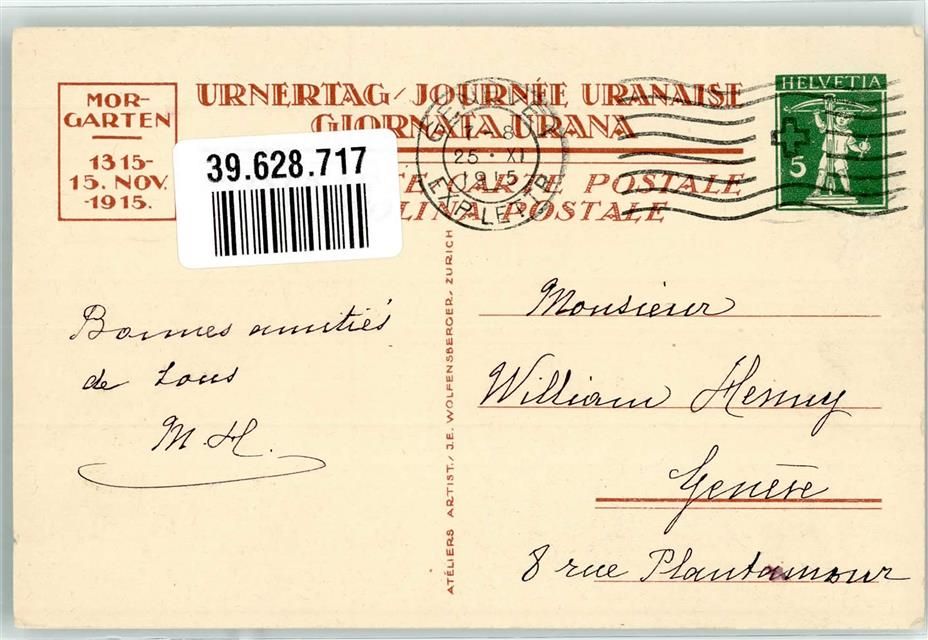 MOR-
GARTEN
1315-
15. NOV.
-1915.
URNERTAG / JOURNÉE URANAISE
GIORNATA URANA
CARTE POSTALE
POSTALE
39.628.717
7-8
25 · XI
1915
EXP. LET
HELVETIA
5
Bonnes amitiés
de tous
M. H.
ATÉLIERS ARTIST. / J.E. WOLFENSBERGER, ZURICH
Monsieur
William Henny
Genève
8 rue Plantamour